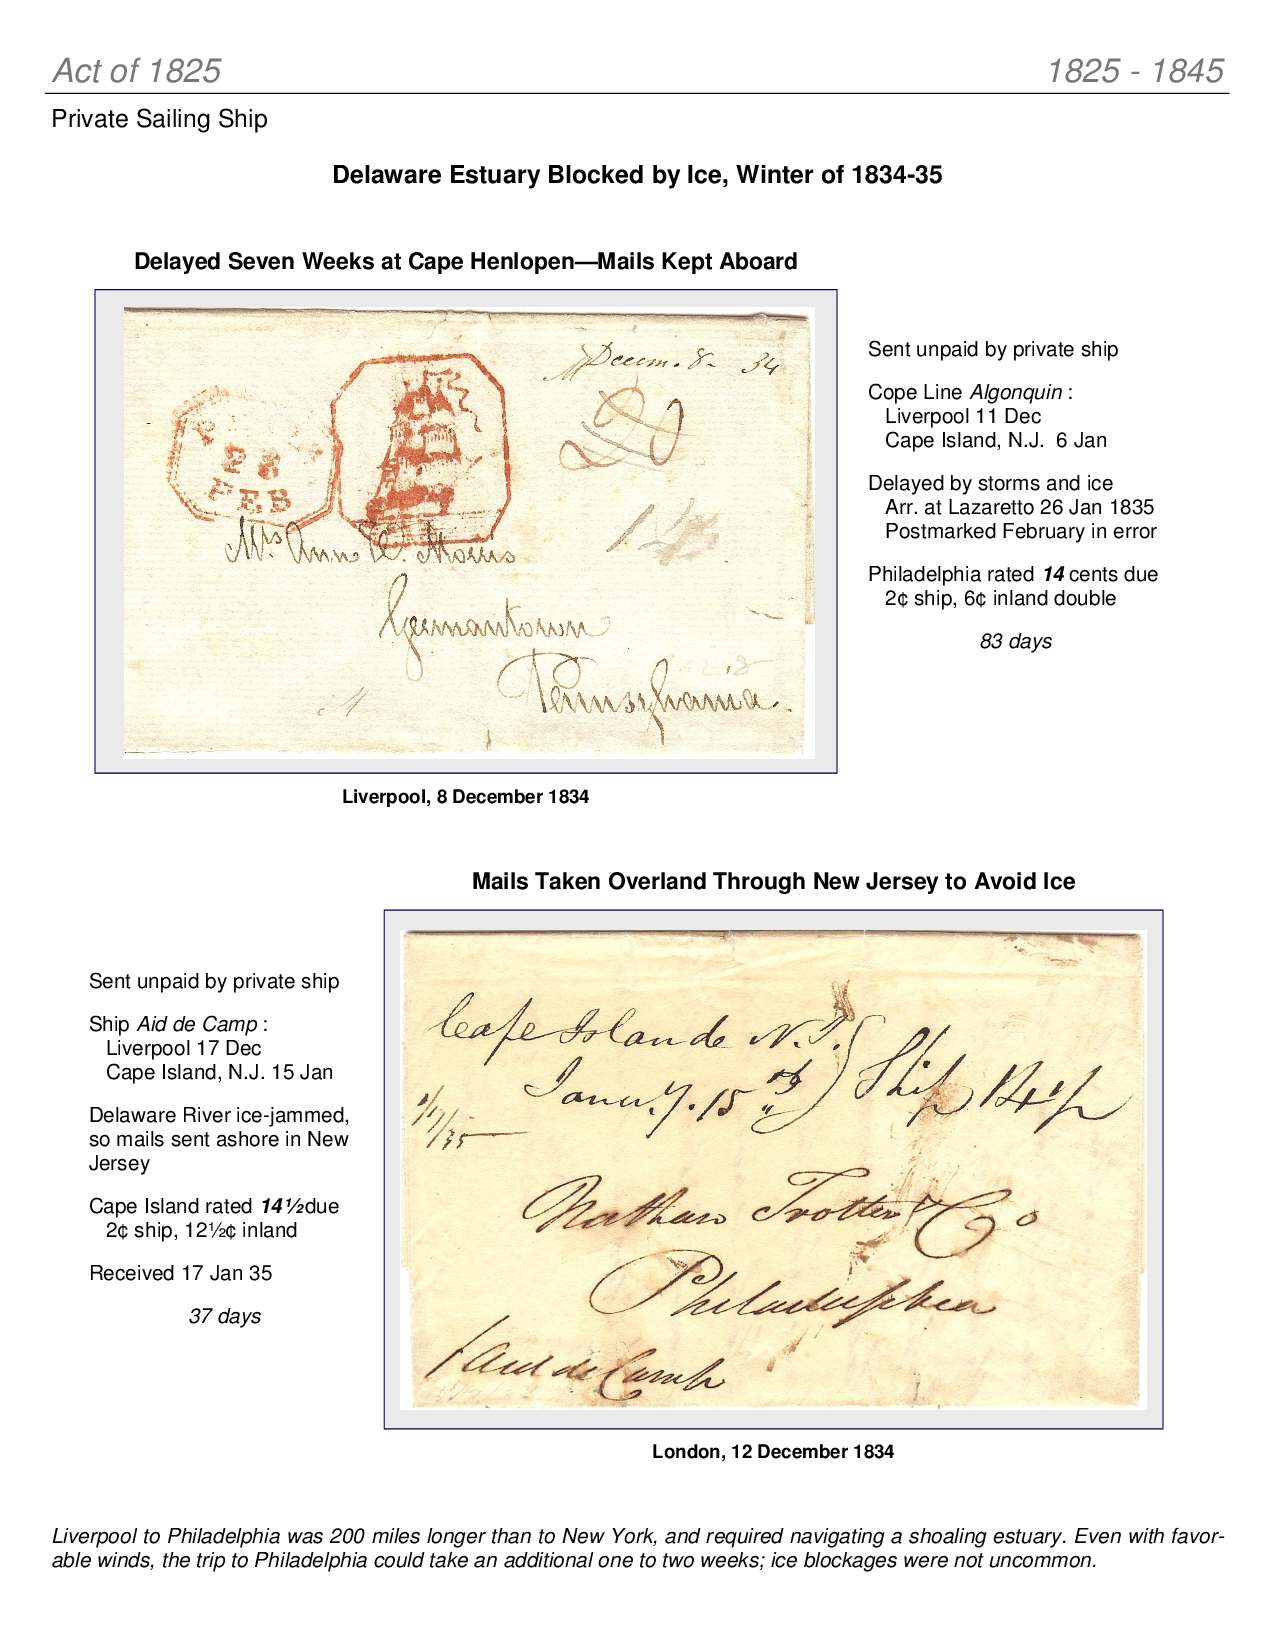 Act of 1825
1825 - 1845
Private Sailing Ship
Delaware Estuary Blocked by Ice, Winter of 1834-35
Delayed Seven Weeks at Cape Henlopen—Mails Kept Aboard
Decem. 8- 34
28
FEB
20
14
Mrs Ann C. Morris
Germantown
Pennsylvania.
Sent unpaid by private ship
Cope Line Algonquin :
Liverpool 11 Dec
Cape Island, N.J. 6 Jan
Delayed by storms and ice
Arr. at Lazaretto 26 Jan 1835
Postmarked February in error
Philadelphia rated 14 cents due
2¢ ship, 6¢ inland double
83 days
Liverpool, 8 December 1834
Mails Taken Overland Through New Jersey to Avoid Ice
Sent unpaid by private ship
Ship Aid de Camp :
Liverpool 17 Dec
Cape Island, N.J. 15 Jan
Delaware River ice-jammed,
so mails sent ashore in New
Jersey
Cape Island rated 14½due
2¢ ship, 12½¢ inland
Received 17 Jan 35
37 days
Cape Island N.J.
Janu.y. 15th Ship 14½
1/17/35
Nathan Trotter & Co
Philadelphia
Aid de Camp
London, 12 December 1834
Liverpool to Philadelphia was 200 miles longer than to New York, and required navigating a shoaling estuary. Even with favor-
able winds, the trip to Philadelphia could take an additional one to two weeks; ice blockages were not uncommon.